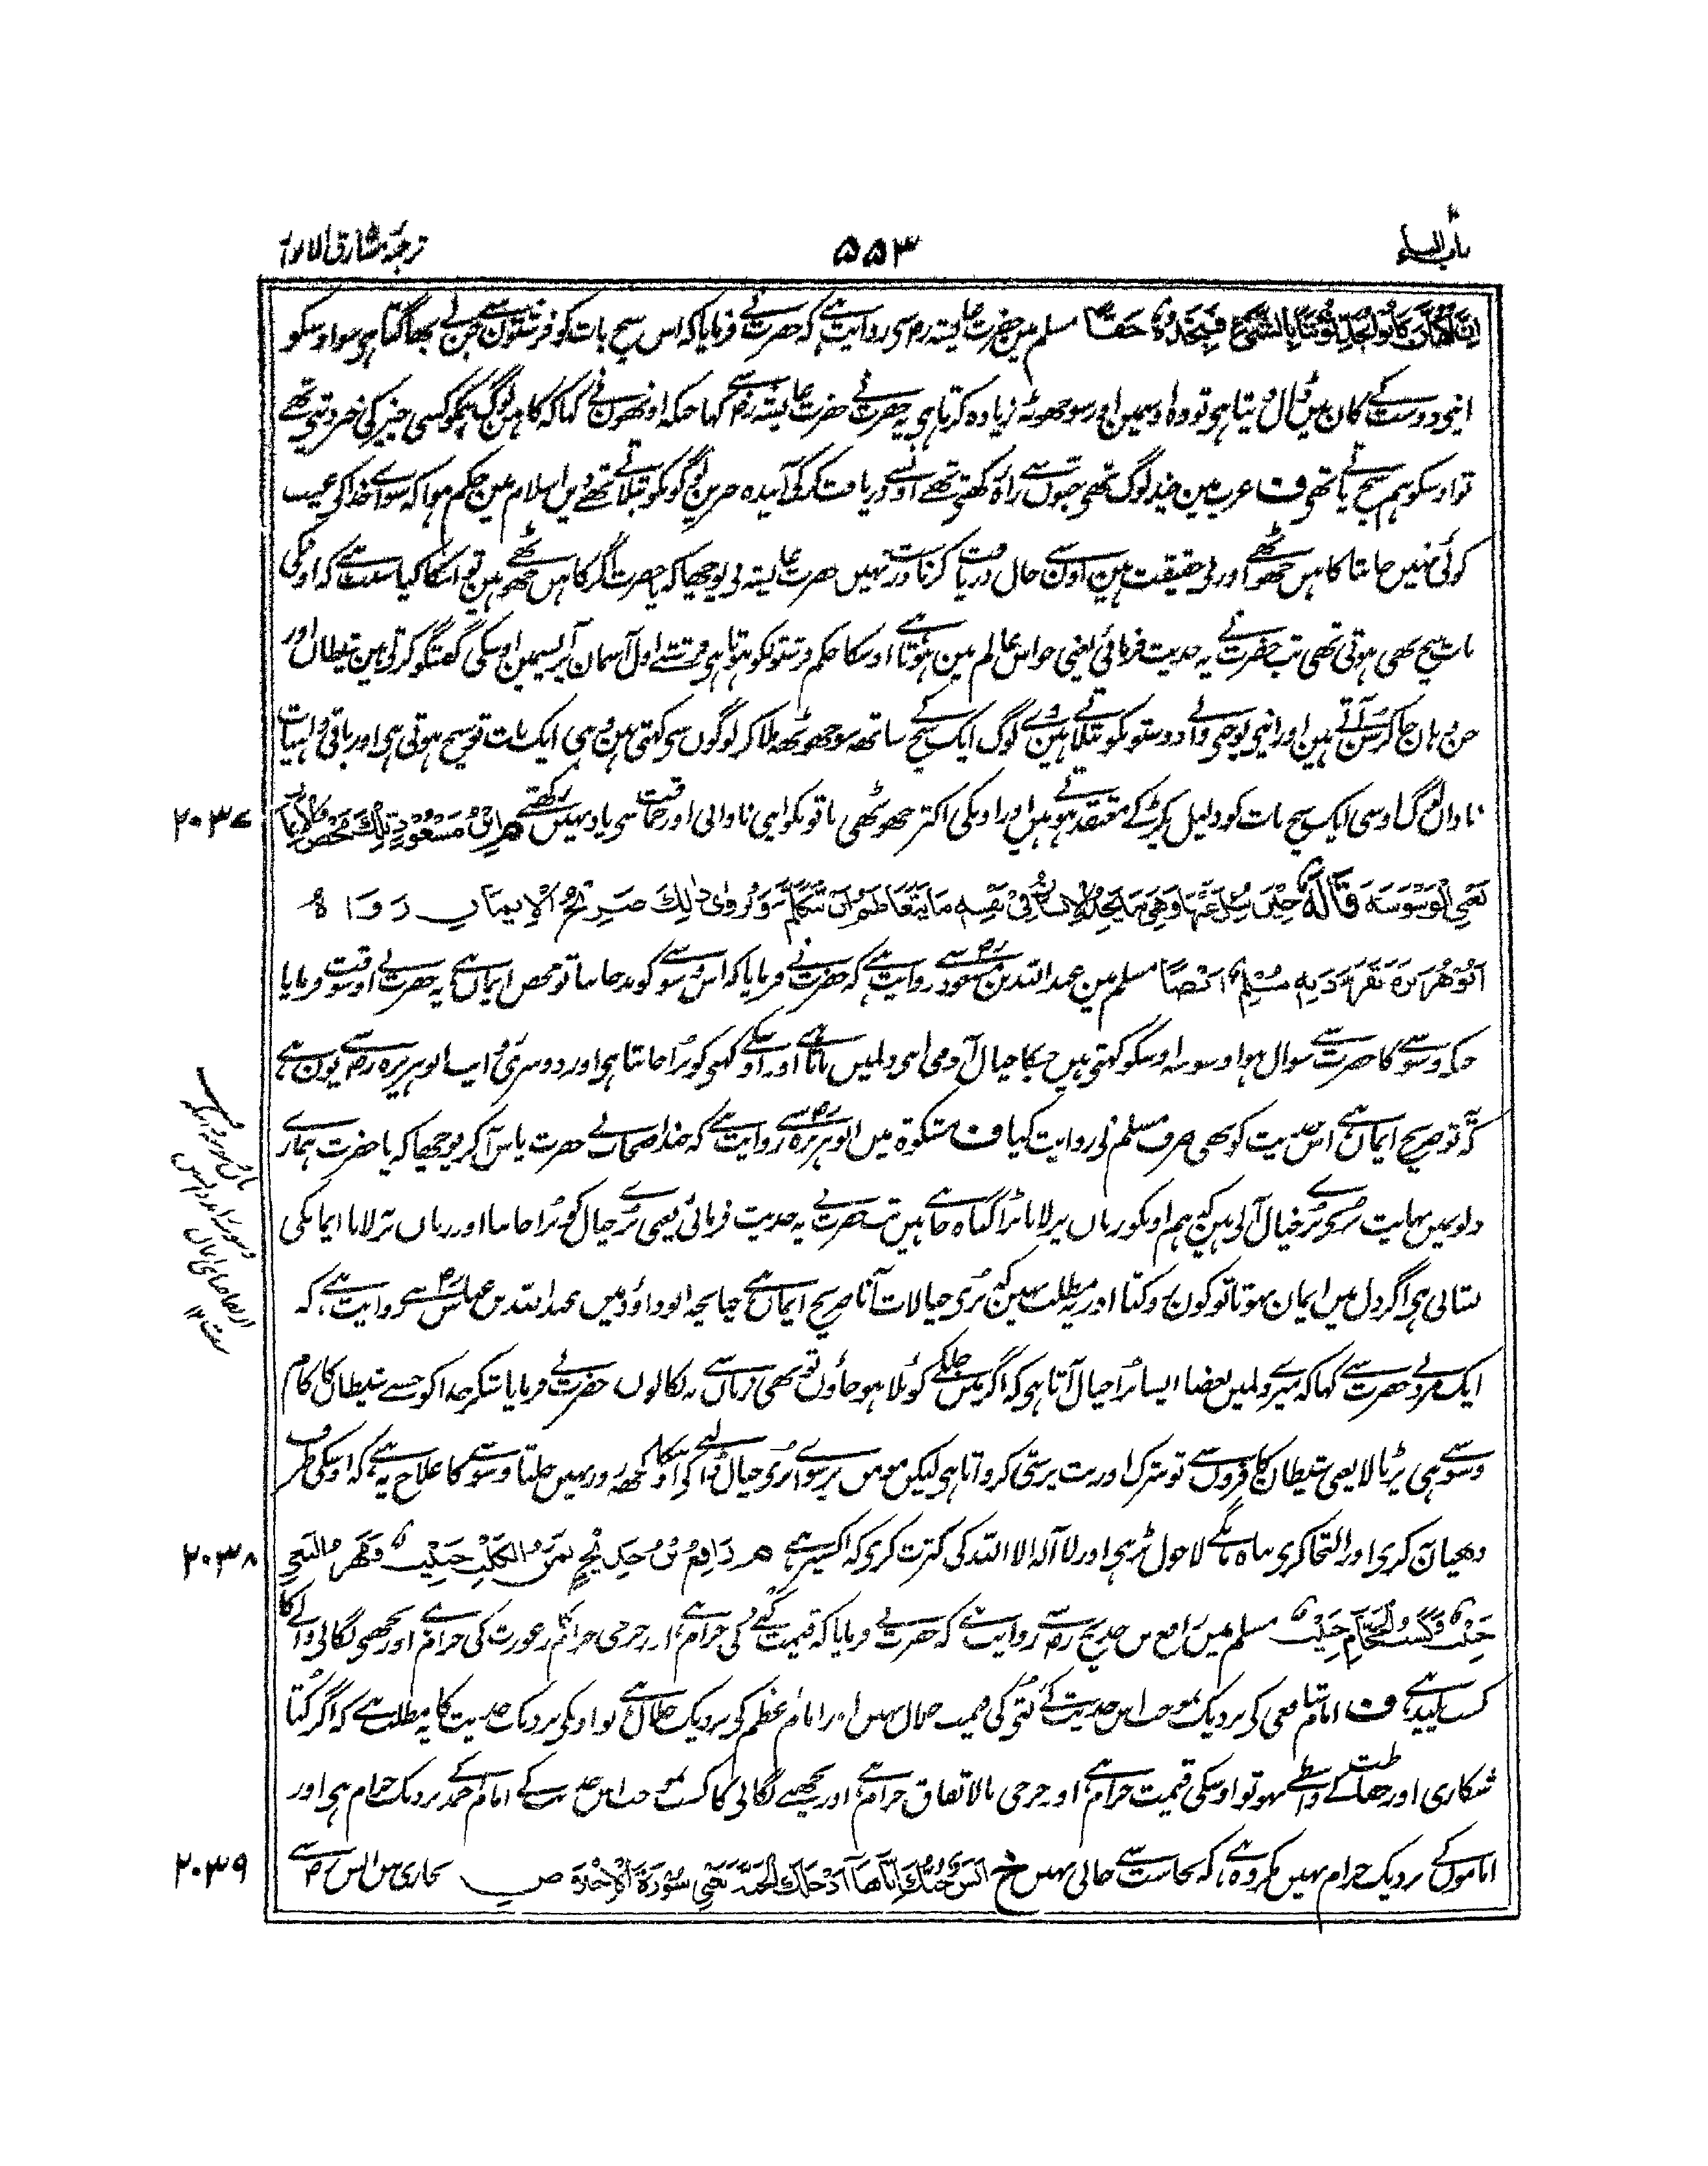 ترجمۂ مشارق الانوار
۵۵۳
باب
اِنَّ الْكُهَّانَ كَانُوْا يُحَدِّثُوْنَنَا بِالشَّيْءِ فَنَجِدُهُ حَقًّا مسلم مین حضرت عایشہ رض سی روایت ہے کہ حضرت نے فرمایا کہ اس سچ بات کو فرشتون سے جن لے بھاگتا ہی سو اوسکو
اپنی دوست کے کان میں ڈال دیتا ہی تو وہ اوسمین اور سو جھوٹہ زیادہ کرتا ہی یہ حضرت نے حضرت عایشہ رض سے کہا جبکہ اونھون نے کہا کہ کاہن لوگ ہمکو کسی چیز کی خبر دیتی تھے
تو اوسکو ہم سچ پاتے تھی ف عرب مین چند لوگ تھی جنوں سے راہ رکھتی تھے اونسے دریافت کرکی آیندہ خبرین لوگونکو بتلاتے تھے دین اسلام مین حکم ہوا کہ سواے خدا کی غیب
کوئی نہین جانتا کاہن جھوٹھے اور بی حقیقت ہین اونسے حال دریافت کرنا درست نہیں حضرت عایشہ نی پوچھا کہ یا حضرت اگر کاہن جھوٹھے ہین تو اسکا کیا سبب ہے کہ اونکی
بات سچ بھی ہوتی تھی تب حضرت نے یہ حدیث فرمائی یعنی جو اس عالم مین ہوتا ہے اوسکا حکم فرشتونکو ہوتا ہی فرشتے اول آسمان پر آپسمین اوسکی گفتگو کرتی ہین شیطان اور
جن وہان جا کر سن آتے ہین اور اپنی پوجنی والے دوستونکو بتلاتے ہین وے لوگ ایک سچ کے ساتھ سو جھوٹھ ملا کر لوگون سی کہتی ہین وہی ایک بات تو سچ ہوتی ہی اور باقی واہیات
نادان لوگ اوسی ایک سچ بات کو دلیل پکڑ کے معتقد ہوتے ہیں اور اونکی اکثر جھوٹھی باتونکو اپنی نادانی اور حماقت سی یاد نہیں رکھتے م اِبْنُ مَسْعُوْدٍ تِلْكَ مَحْضُ الْاِيْمَانِ
۲۰۳۷
يَعْنِي الْوَسْوَسَةَ قَالَهُ حِيْنَ سُئِلَ عَنْهَا وَهِيَ مَا يَجِدُ الْاِنْسَانُ فِيْ نَفْسِهٖ مَا يَتَعَاظَمُ اَنْ يَتَكَلَّمَ وَيُرْوٰى ذٰلِكَ صَرِيْحُ الْاِيْمَانِ رَوَاهُ
اَبُوْ هُرَيْرَةَ تَفَرَّدَ بِهٖ مُسْلِمٌ اَيْضًا مسلم مین عبد اللہ بن مسعود رض سے روایت ہے کہ حضرت نے فرمایا کہ اس وسوسے کو بد جاننا تو محض ایمان ہے یہ حضرت نے اوسوقت فرمایا
جبکہ وسوسے کا حضرت سے سوال ہوا وسوسہ اوسکو کہتی ہین جسکا خیال آدمی اپنی دلمیں پاتا ہے اور اوسکے کہنی کو برا جانتا ہی اور دوسری روایت ابو ہریرہ رض سے یون ہے
کہ یہ تو صریح ایمان ہے اس حدیث کو بھی صرف مسلم نی روایت کیا ف مشکوۃ میں ابو ہریرہ رض سے روایت ہے کہ چند اصحاب نے حضرت پاس آ کر پوچھا کہ یا حضرت ہمارے
دلونمیں نہایت بُری بُرے خیال آتی ہین کہ ہم اونکو زبان پر لانا بڑا گناہ جانتے ہیں تب حضرت نے یہ حدیث فرمائی یعنی بُرے خیال کو بُرا جاننا اور زبان پر نہ لانا ایمانکی
نشانی ہی اگر دل میں ایمان نہوتا تو کون روکتا اور یہ مطلب نہین کہ بُری خیالات آنا صریح ایمان ہے چنانچہ ابو داؤد میں عبد اللہ بن عباس رض سے روایت ہے کہ
ایک مرد نے حضرت سے کہا کہ میرے دلمیں بعضا ایسا بُرا خیال آتا ہی کہ اگر میں جلکے کوئلا ہو جاؤن تو بھی زبان سے نہ نکالون حضرت نے فرمایا شکر خدا کو جسنے شیطان کا کام
وسوسے ہی پر ٹالا یعنی شیطان کافرون سے تو شرک اور بت پرستی کرواتا ہی لیکن مومن پر سواے بُری خیال ڈالنے کی اوسکا کچھ زور نہیں چلتا وسوسے کا علاج یہ ہے کہ اوسکی طرف
دھیان نکری اور التجا کری پناہ مانگے لا حول پڑہی اور لا الہ الا اللہ کی کثرت کری کہ اکسیر ہے م رَافِعُ بْنُ خَدِيْجٍ ثَمَنُ الْكَلْبِ خَبِيْثٌ وَمَهْرُ الْبَغِيِّ
۲۰۳۸
خَبِيْثٌ وَكَسْبُ الْحَجَّامِ خَبِيْثٌ مسلم میں رافع بن خدیج رض سے روایت ہے کہ حضرت نے فرمایا کہ قیمت کتے کی حرام ہے اور خرچی حرام کار عورت کی حرام ہے اور پچھنی لگانی والے کا
کسب پلید ہے ف امام شافعی کی نزدیک بموجب اس حدیث کے کتی کی قیمت حلال نہیں اور امام اعظم کی نزدیک حلال ہے تو اونکی نزدیک حدیث کا یہ مطلب ہے کہ اگر کتا
شکاری اور حفاظت کے واسطے نہو تو اوسکی قیمت حرام ہے اور خرچی بالاتفاق حرام ہے اور پچھنے لگانی کا کسب بموجب اس حدیث کے امام احمد کے نزدیک حرام ہی اور
اماموں کے نزدیک حرام نہیں مکروہ ہے کہ نجاست سے خالی نہیں خ اَنَسٌ حُبُّكَ اِيَّاهَا اَدْخَلَكَ الْجَنَّةَ يَعْنِيْ سُوْرَةَ الْاِخْلَاصِ بخاری میں انس رض سے
۲۰۳۹